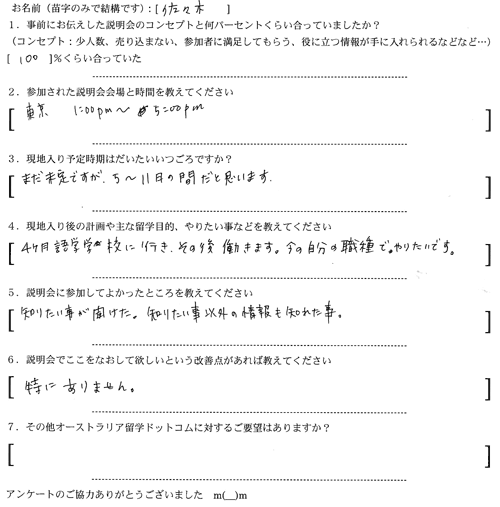 お名前（苗字のみで結構です）：[ 佐々木 ]
１．事前にお伝えした説明会のコンセプトと何パーセントくらい合っていましたか？
（コンセプト：少人数、売り込まない、参加者に満足してもらう、役に立つ情報が手に入れられるなどなど…）
[ 100 ]％くらい合っていた
２．参加された説明会会場と時間を教えてください
[ 東京 1:00pm〜5:00pm ]
３．現地入り予定時期はだいたいいつごろですか？
[ まだ未定ですが、5〜11月の間だと思います。 ]
４．現地入り後の計画や主な留学目的、やりたい事などを教えてください
[ 4ヶ月語学学校に行き、その後働きます。今の自分の職種でやりたいです。 ]
５．説明会に参加してよかったところを教えてください
[ 知りたい事が聞けた。知りたい事以外の情報も知れた事。 ]
６．説明会でここをなおして欲しいという改善点があれば教えてください
[ 特にありません。 ]
７．その他オーストラリア留学ドットコムに対するご要望はありますか？
[ ]
アンケートのご協力ありがとうございました m(__)m